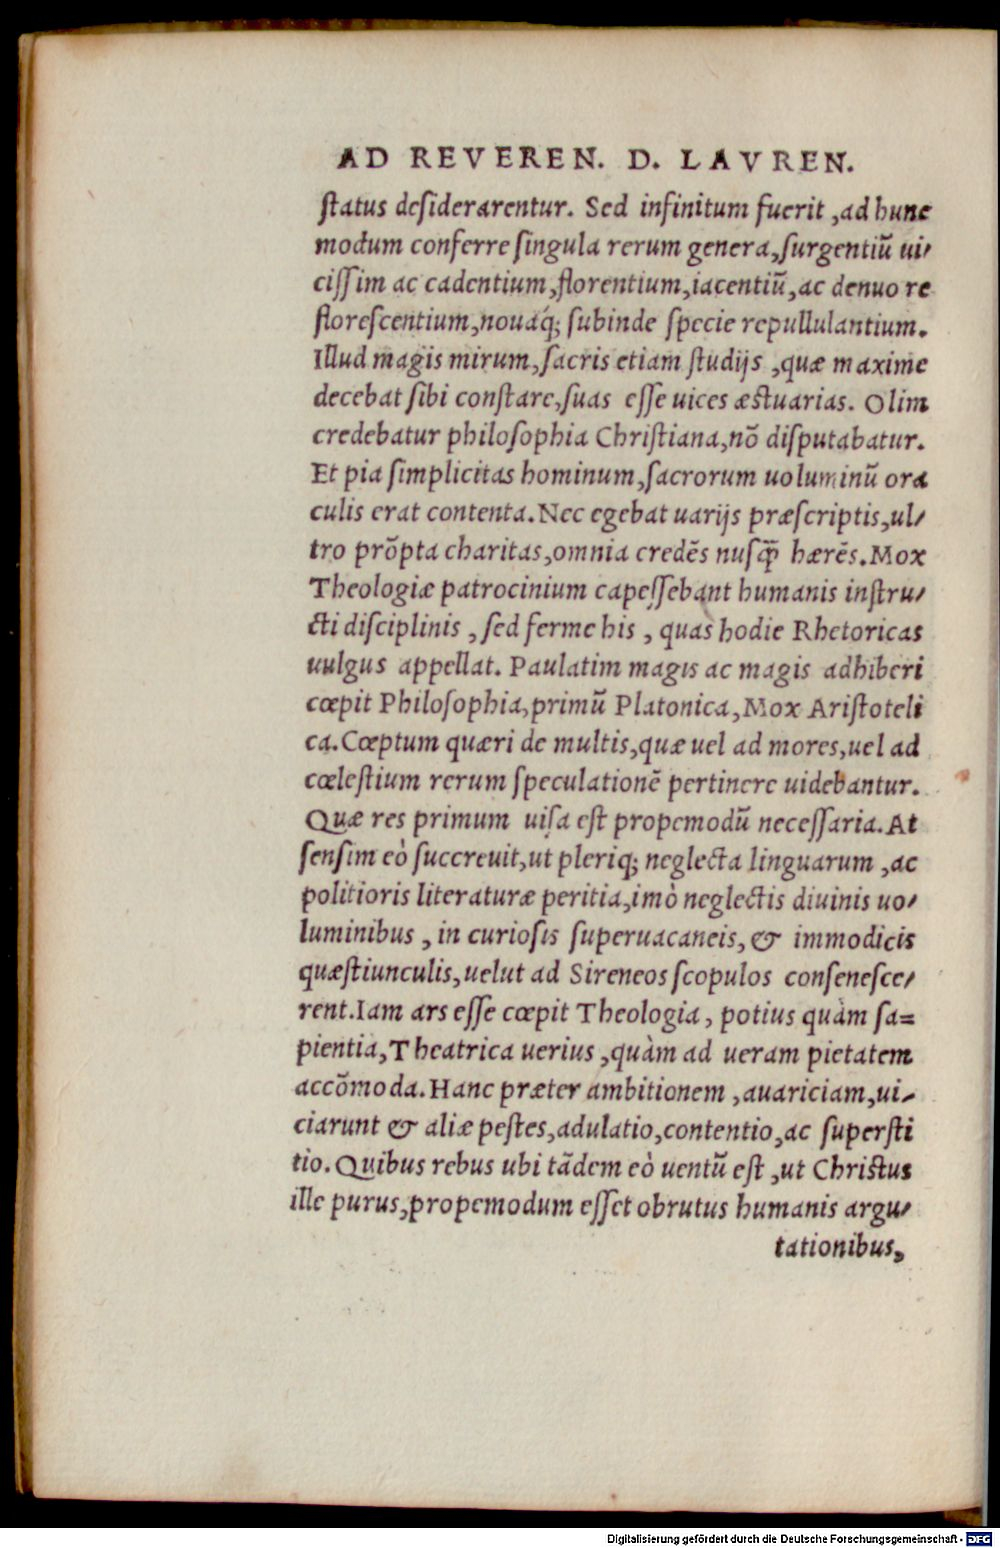 AD REVEREN. D. LAVREN.
status desiderarentur. Sed infinitum fuerit ,ad hunc
modum conferre singula rerum genera,surgentiũ ui/
cissim ac cadentium,florentium,iacentiũ,ac denuo re
florescentium,nouaq́; subinde specie repullulantium.
Illud magis mirum,sacris etiam studijs ,quæ maxime
decebat sibi constare,suas esse uices æstuarias. Olim
credebatur philosophia Christiana,nõ disputabatur.
Et pia simplicitas hominum,sacrorum uoluminũ ora
culis erat contenta.Nec egebat uarijs præscriptis,ul/
tro prõpta charitas,omnia credẽs nusq̃ hærẽs.Mox
Theologiæ patrocinium capessebant humanis instru/
cti disciplinis , sed ferme his , quas hodie Rhetoricas
uulgus appellat. Paulatim magis ac magis adhiberi
cœpit Philosophia,primũ Platonica,Mox Aristoteli
ca.Cœptum quæri de multis,quæ uel ad mores,uel ad
cœlestium rerum speculationẽ pertinere uidebantur.
Quæ res primum uisa est propemodũ necessaria.At
sensim eò succreuit,ut pleriq; neglecta linguarum ,ac
politioris literaturæ peritia,imò neglectis diuinis uo/
luminibus , in curiosis superuacaneis, & immodicis
quæstiunculis,uelut ad Sireneos scopulos consenesce/
rent.Iam ars esse cœpit Theologia, potius quàm sa=
pientia,Theatrica uerius ,quàm ad ueram pietatem
accõmoda.Hanc præter ambitionem ,auariciam,ui/
ciarunt & aliæ pestes,adulatio,contentio,ac supersti
tio.Quibus rebus ubi tãdem eò uentũ est ,ut Christus
ille purus,propemodum esset obrutus humanis argu/
tationibus,
Digitalisierung gefördert durch die Deutsche Forschungsgemeinschaft - DFG